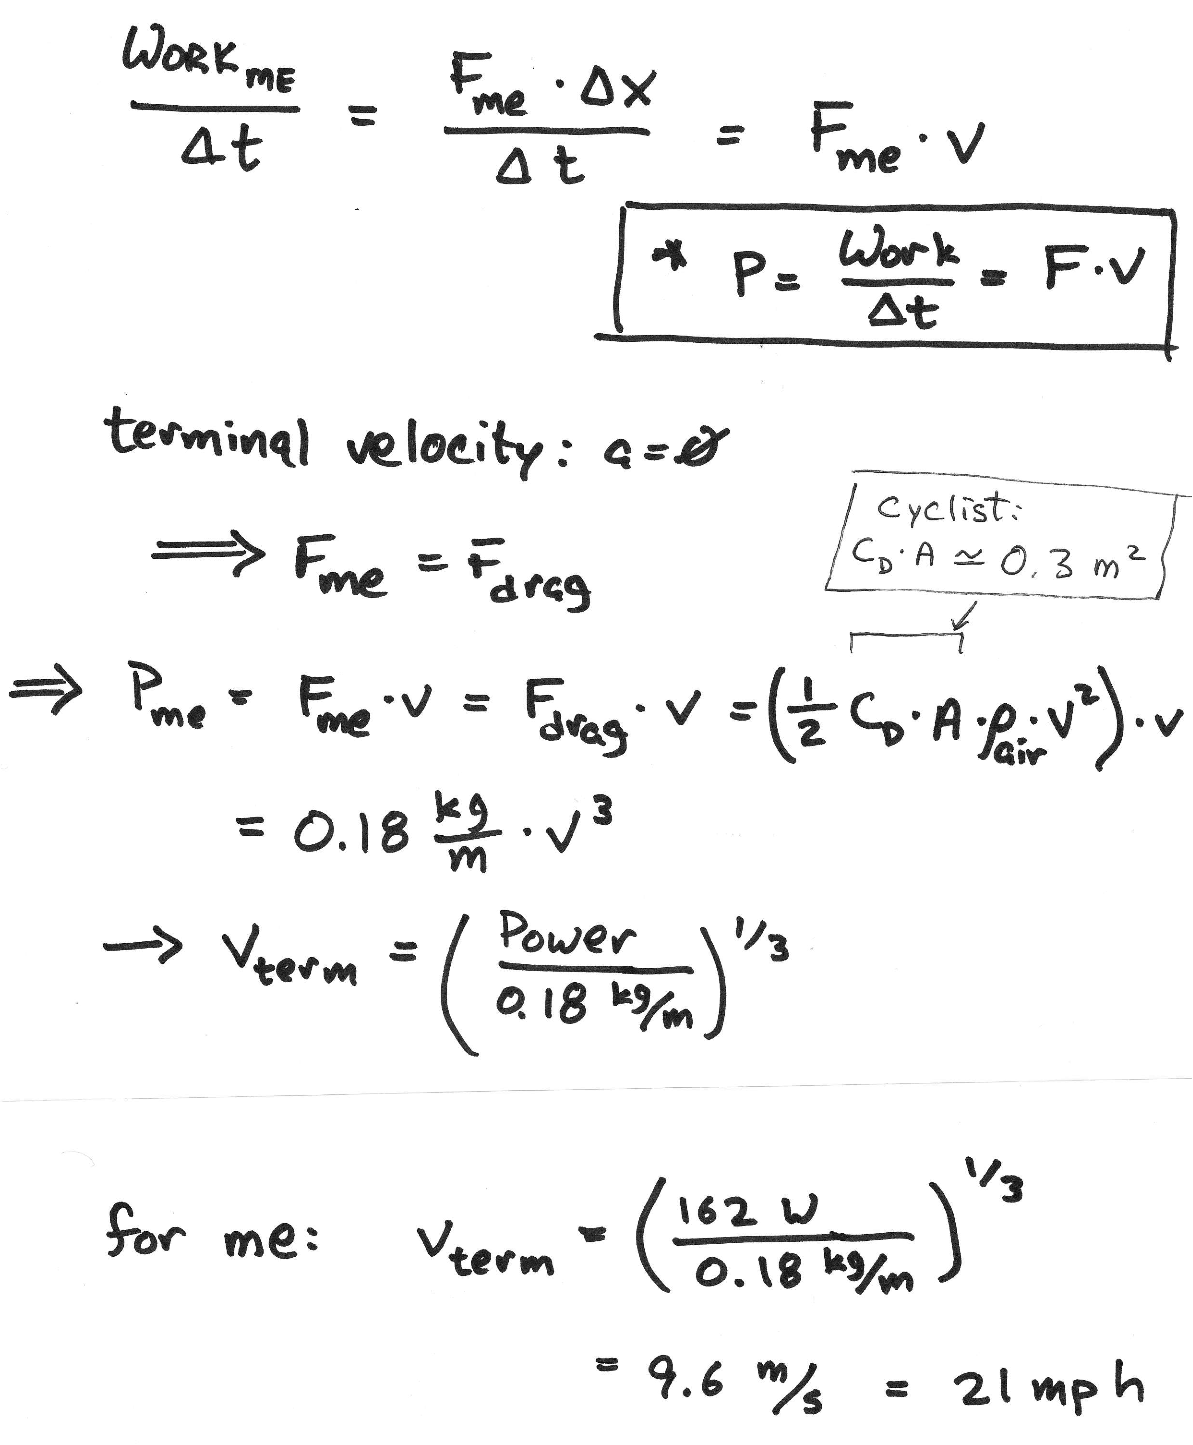 WORK_ME / Δt = F_me · Δx / Δt = F_me · v
* P = Work / Δt = F · v
terminal velocity: a = ∅
⟹ F_me = F_drag
Cyclist:
C_D · A ≃ 0.3 m²
⟹ P_me = F_me · v = F_drag · v = (1/2 C_D · A · ρ_air · v²) · v
= 0.18 kg/m · v³
→ v_term = (Power / 0.18 kg/m)^1/3
for me: v_term = (162 W / 0.18 kg/m)^1/3
= 9.6 m/s = 21 mph